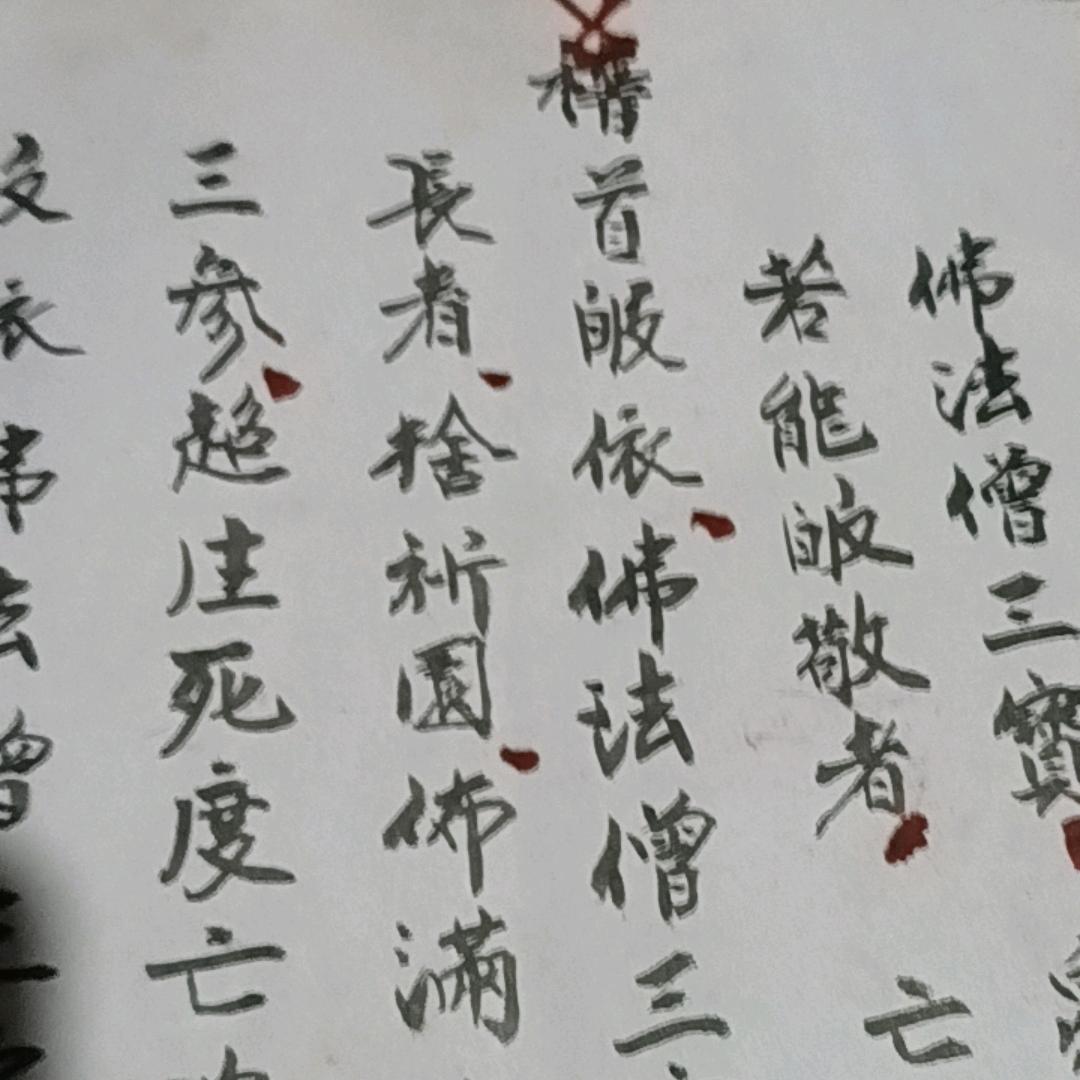 佛法僧三寶
若能皈敬者 亡
稽首皈依佛法僧三
長者捨祈園佈滿
三參超生死度亡
衣佛法僧三